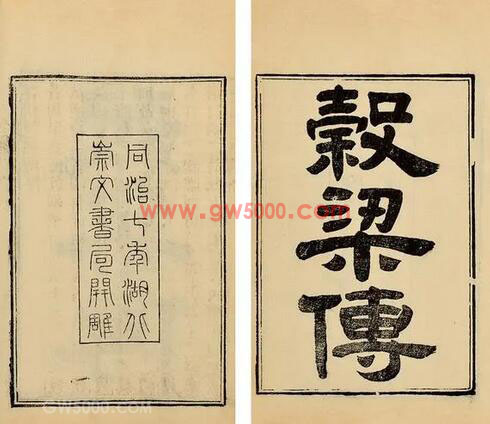 穀梁傳
同治七年湖北
崇文書局開雕
www.gw5000.com
GW5000.COM